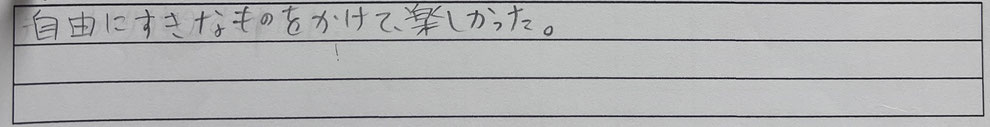 自由にすきなものをかけて、楽しかった。